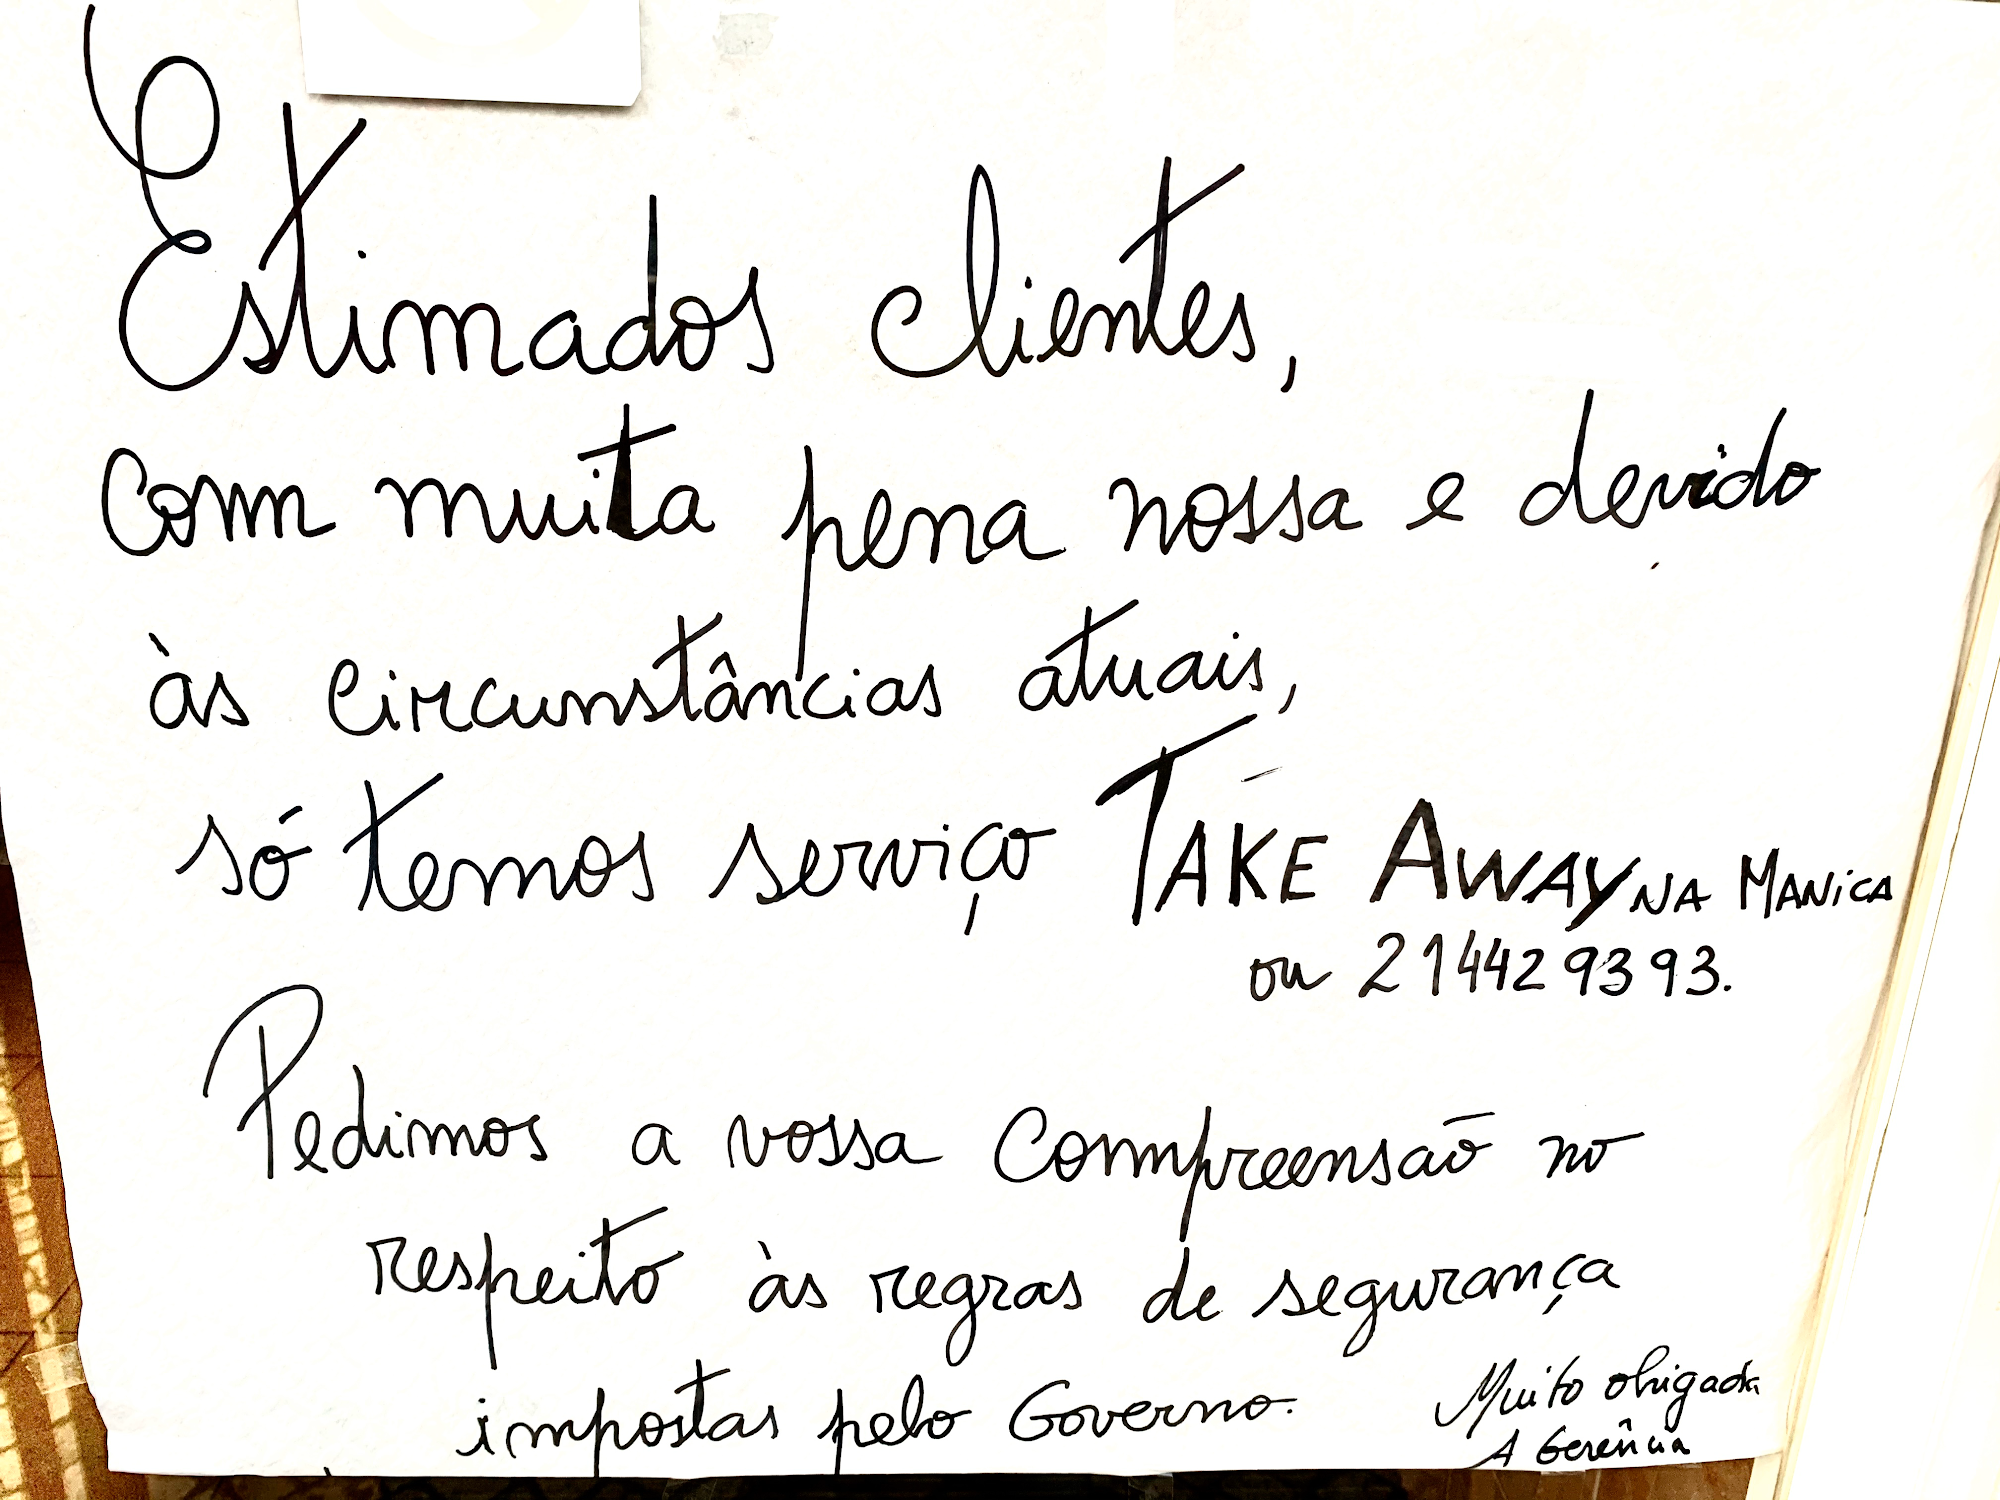 Estimados clientes,
com muita pena nossa e devido
às circunstâncias atuais,
só temos serviço TAKE AWAY NA MANiCA
ou 214429393.
Pedimos a vossa Compreensão no
respeito às regras de segurança
impostas pelo Governo.
Muito obrigada
A Gerência